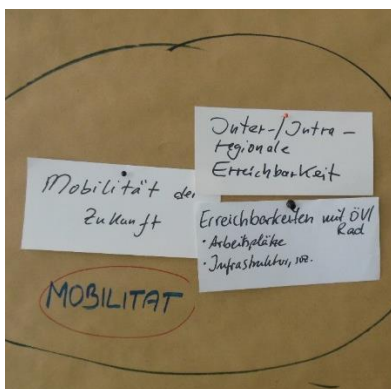 Mobilität der
Zukunft
Inter-/Intra-
regionale
Erreichbarkeit
Erreichbarkeiten mit ÖV/
Rad
• Arbeitsplätze
• Infrastruktur, soz.
MOBILITAT